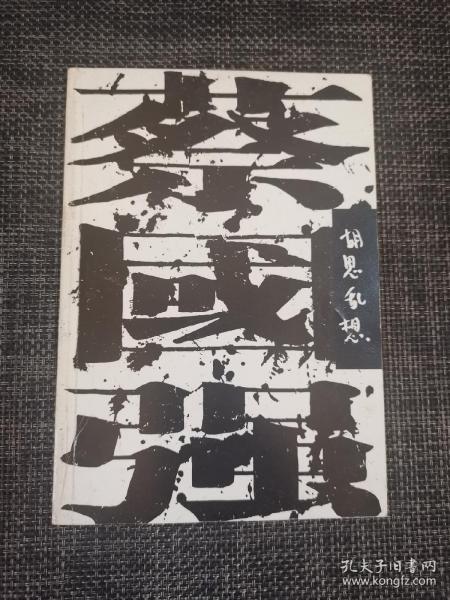 蔡國强
胡思乱想
孔夫子旧书网
www.kongfz.com